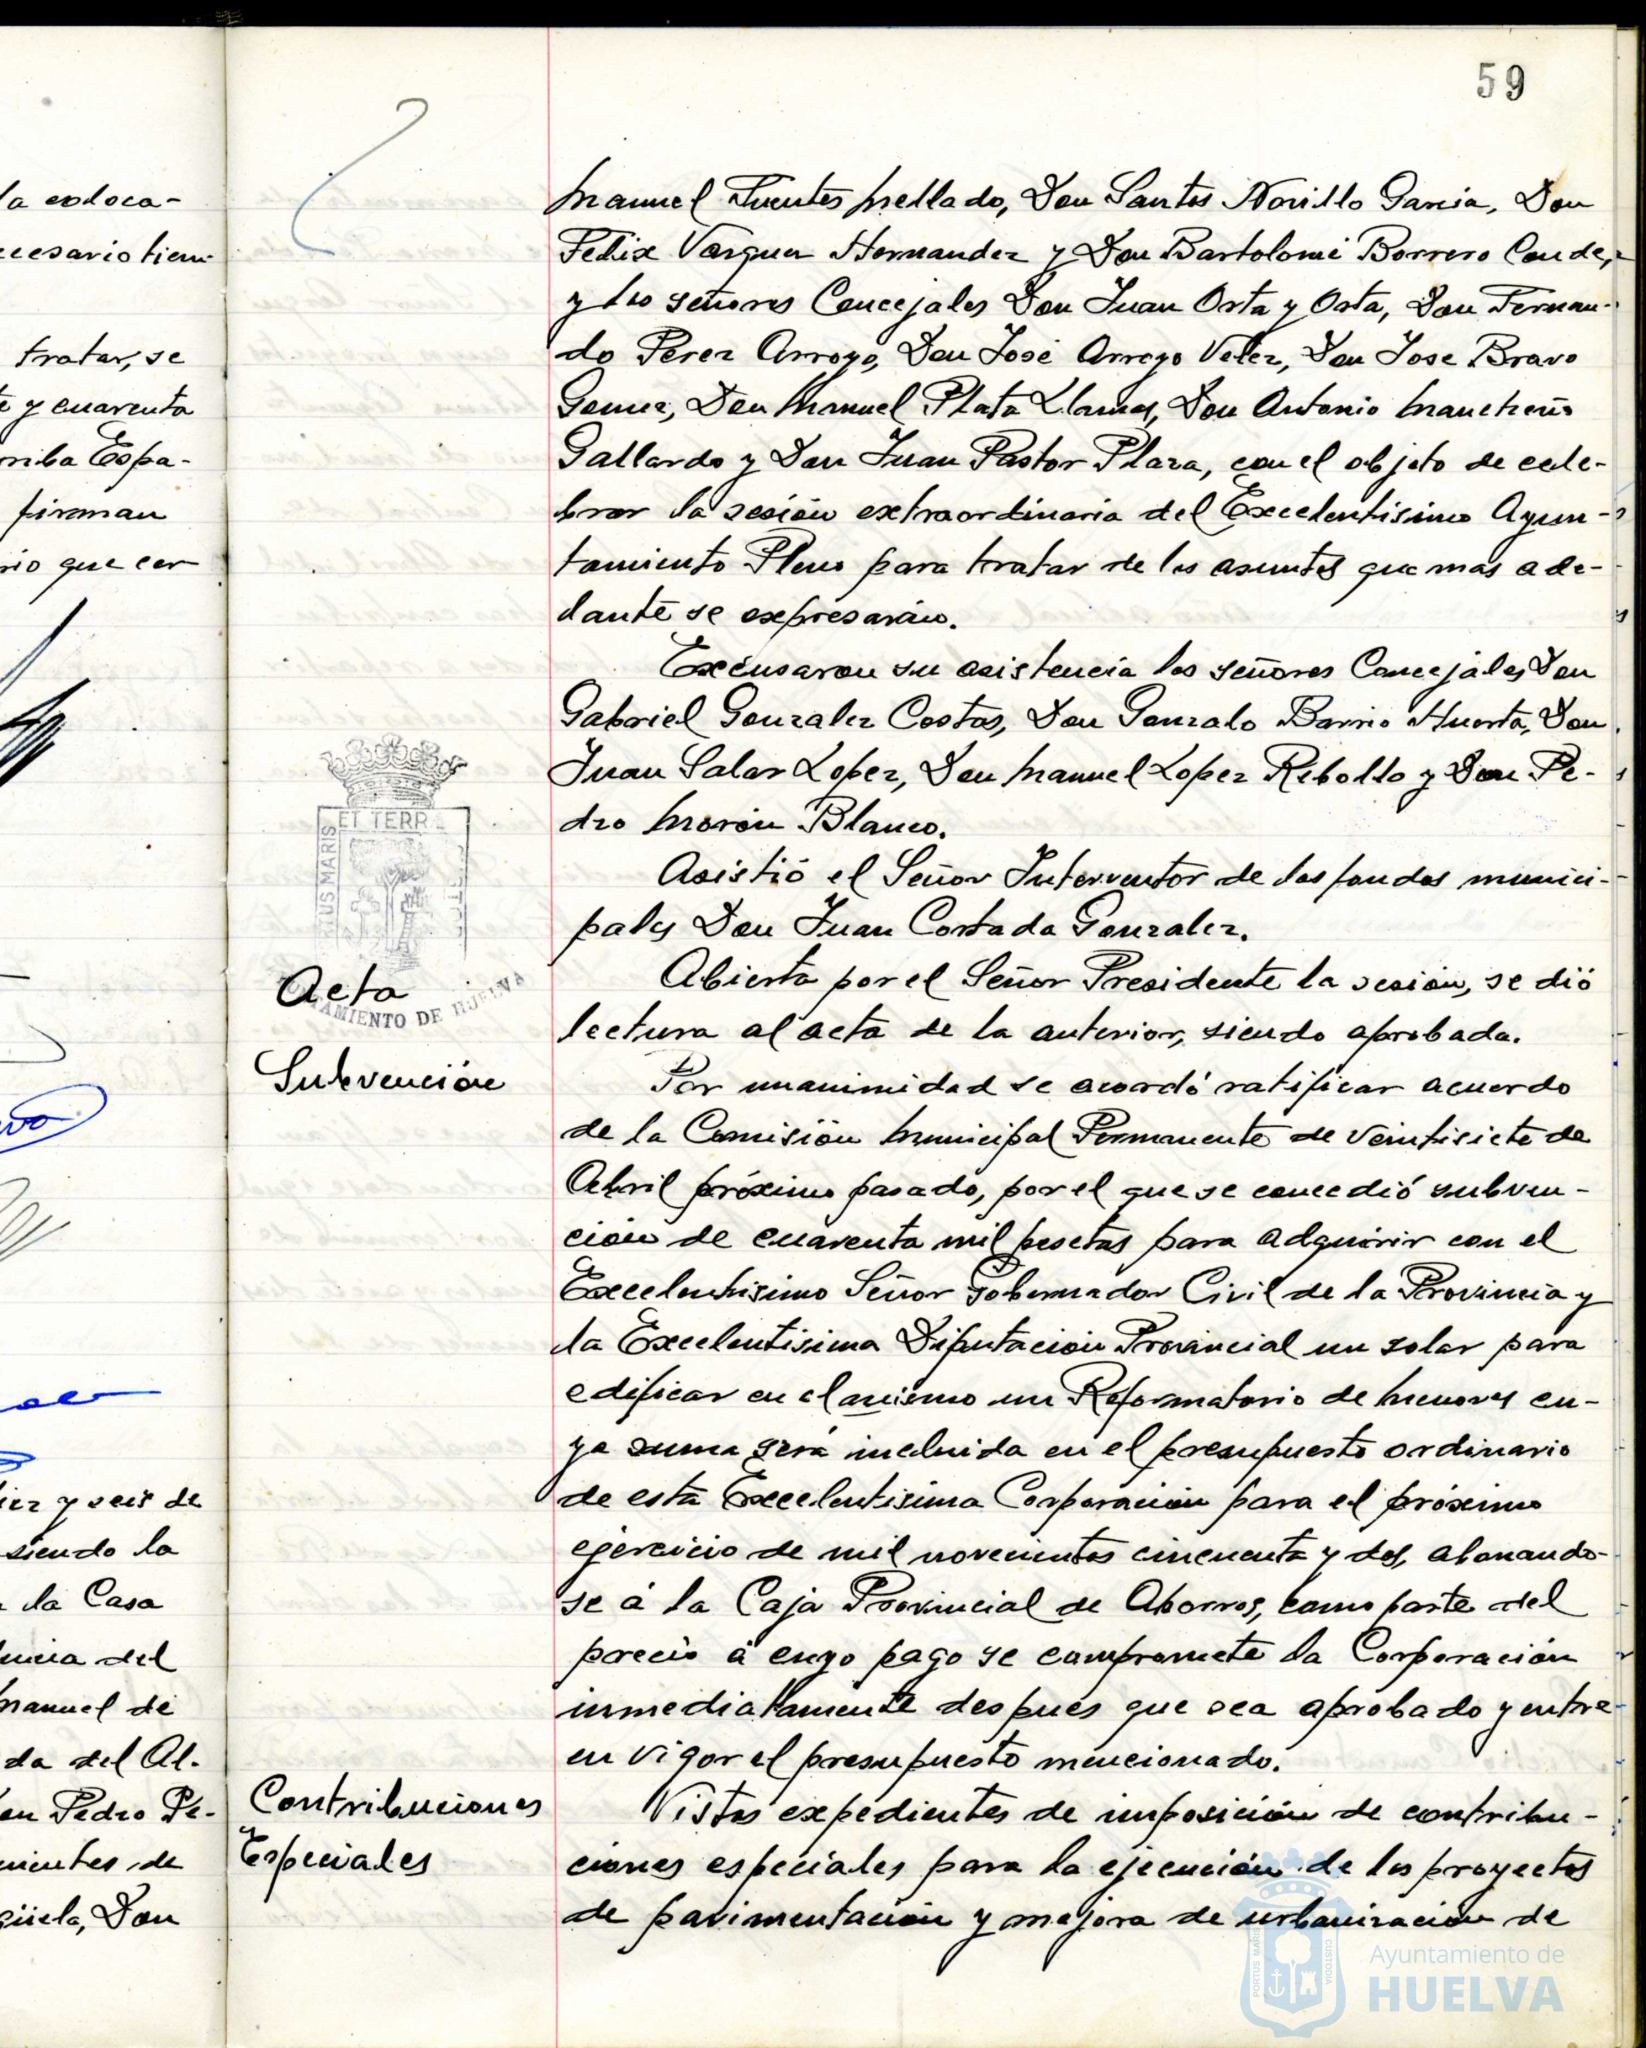 59
la coloca-
cesario tiem-
tratar, se
te y cuarenta
rriba Espa-
firman
rio que cer
iez y seis de
siendo la
la Casa
encia del
Manuel de
da del Al-
on Pedro Pe-
nientes de
güela, Don
Manuel Fuentes Mellado, Don Santos Novillo Garcia, Don
Felix Vazquez Hernandez y Don Bartolomé Borrero Conde,
y los señores Concejales Don Juan Orta y Orta, Don Fernan-
do Perez Arroyo, Don José Arroyo Velez, Don Jose Bravo
Gomez, Don Manuel Plata Llamas, Don Antonio Mancheño
Gallardo y Don Juan Pastor Plaza, con el objeto de cele-
brar la sesión extraordinaria del Excelentisimo Ayun-
tamiento Pleno para tratar de los asuntos que mas ade-
lante se expresarán.
Excusaron su asistencia los señores Concejales Don
Gabriel Gonzalez Costas, Don Gonzalo Barrio Huerta, Don
Juan Salas Lopez, Don Manuel Lopez Rebollo y Don Pe-
dro Morón Blanco.
Asistió el Señor Interventor de los fondos munici-
pales Don Juan Cortada Gonzalez.
ET TERR
US MARIS
TAMIENTO DE HUELVA
Acta
Abierta por el Señor Presidente la sesión, se dió
lectura al acta de la anterior, siendo aprobada.
Subvención
Por unanimidad se acordó ratificar acuerdo
de la Comisión Municipal Permanente de veintisiete de
Abril próximo pasado, por el que se concedió subven-
ción de cuarenta mil pesetas para adquirir con el
Excelentisimo Señor Gobernador Civil de la Provincia y
la Excelentisima Diputación Provincial un solar para
edificar en el mismo un Reformatorio de Menores cu-
ya suma será incluida en el presupuesto ordinario
de esta Excelentisima Corporación para el próximo
ejercicio de mil novecientos cincuenta y dos, abonando-
se á la Caja Provincial de Ahorros, como parte del
precio á cuyo pago se compromete la Corporación
inmediatamente despues que sea aprobado y entre
en vigor el presupuesto mencionado.
Contribuciones
Especiales
Vistos expedientes de imposición de contribu-
ciones especiales para la ejecución de los proyectos
de pavimentación y mejora de urbanización de
PORTUS MARIS
CUSTODIA
Ayuntamiento de
HUELVA